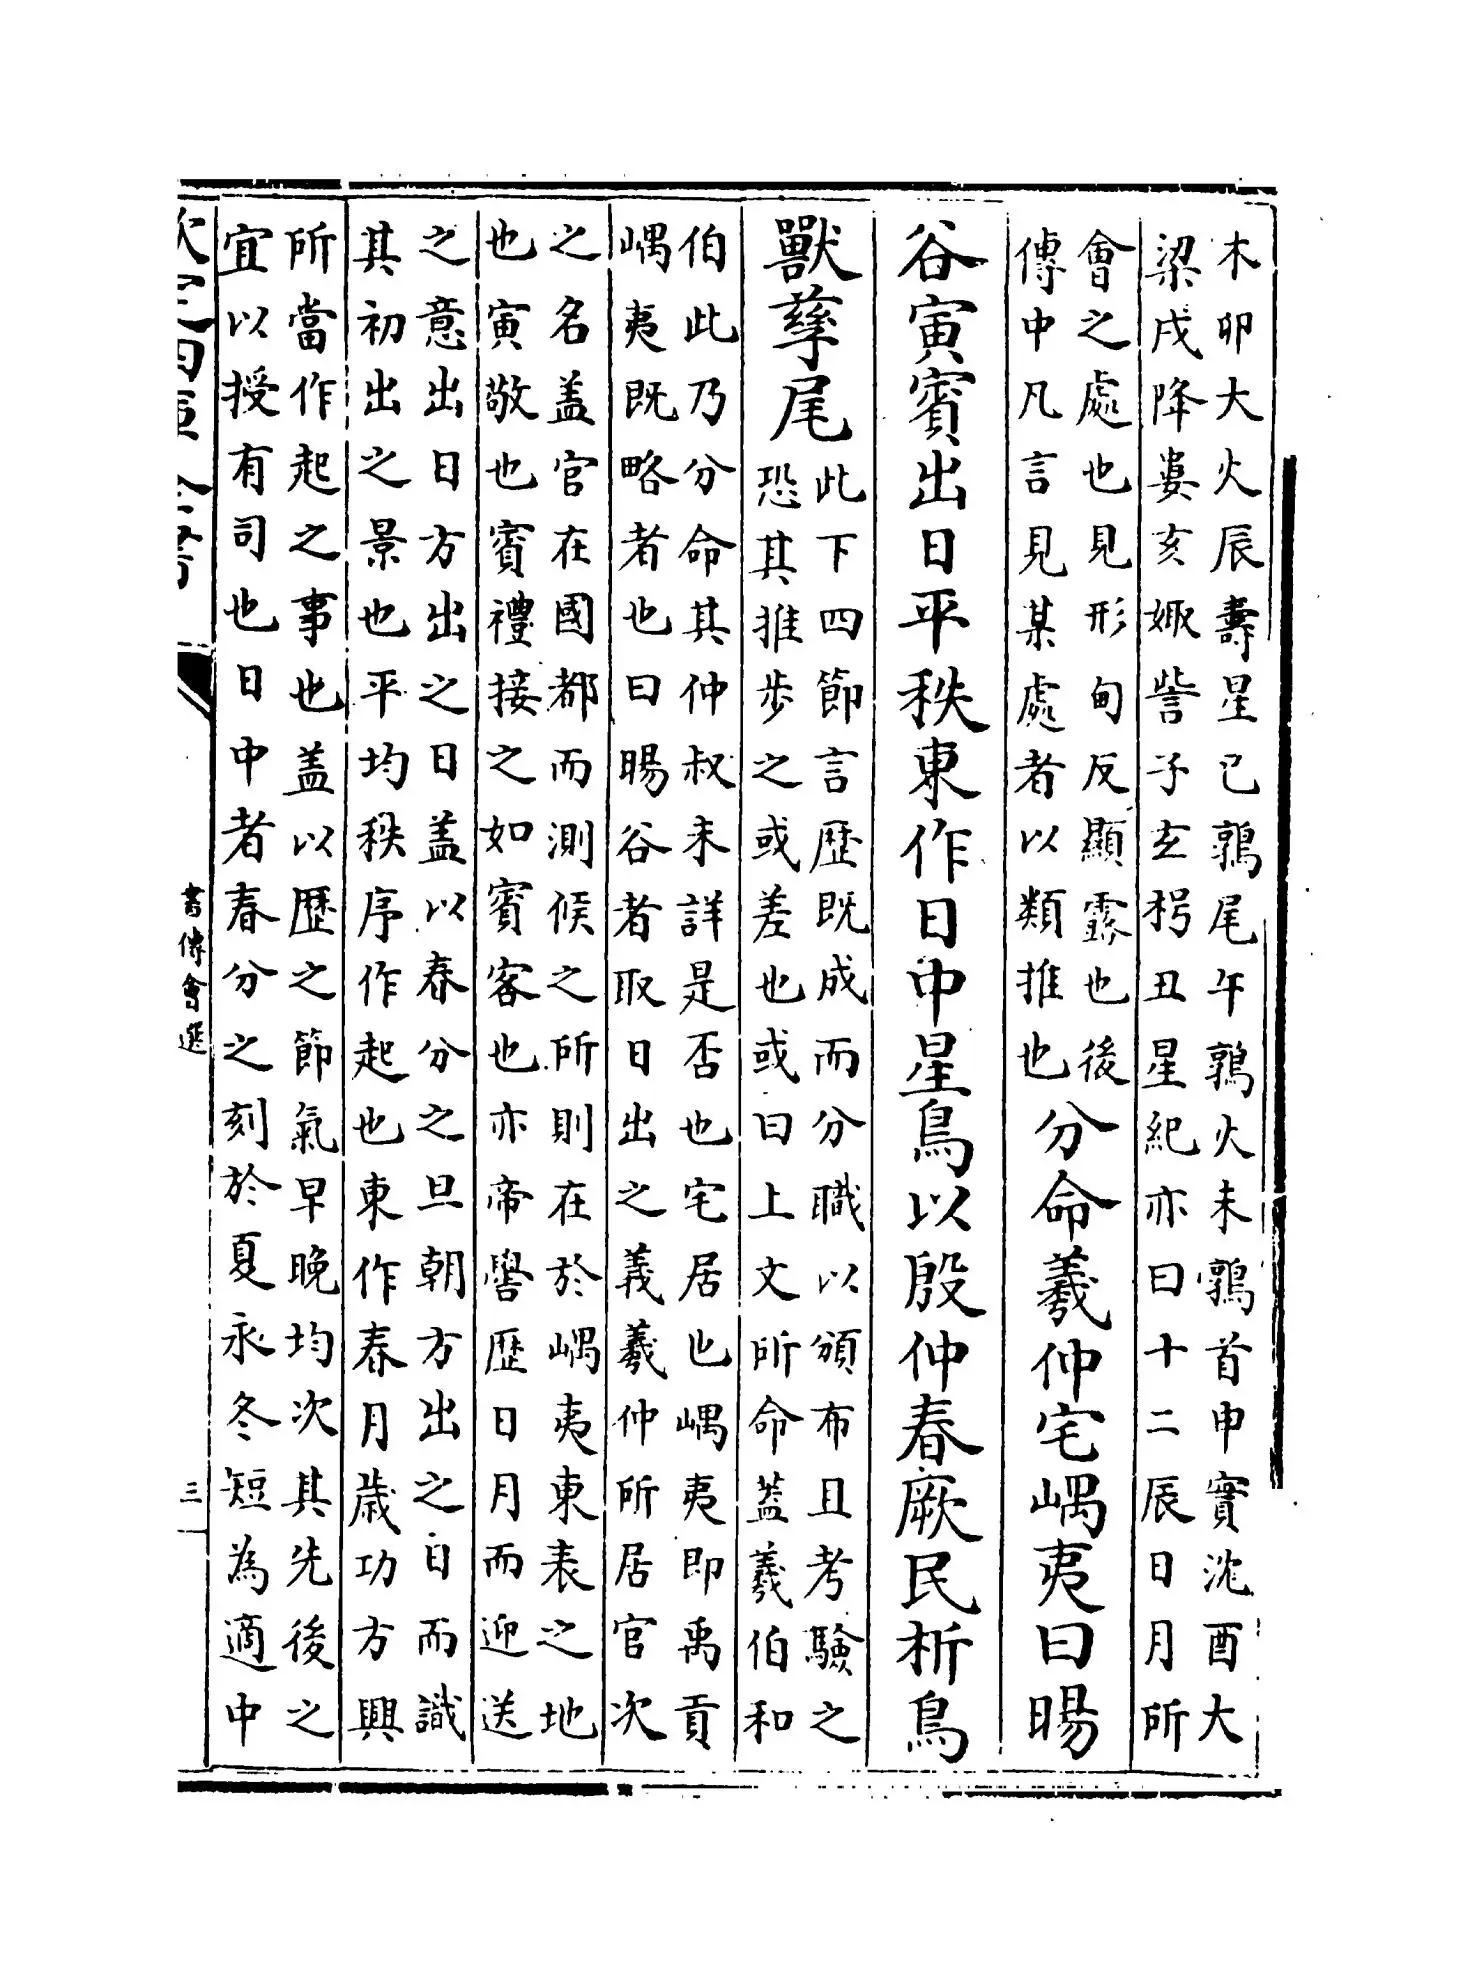 木卯大火辰壽星巳鶉尾午鶉火未鶉首申實沈酉大
梁戌降婁亥娵訾子玄枵丑星紀亦曰十二辰日月所
會之處也見形甸反顯露也後
傳中凡言見某處者以類推也
分命羲仲宅嵎夷曰暘
谷寅賓出日平秩東作日中星鳥以殷仲春厥民析鳥
獸孳尾
此下四節言歴既成而分職以頒布且考驗之
恐其推步之或差也或曰上文所命蓋羲伯和
伯此乃分命其仲叔未詳是否也宅居也嵎夷即禹貢
嵎夷既略者也曰暘谷者取日出之義羲仲所居官次
之名盖官在國都而測候之所則在於嵎夷東表之地
也寅敬也賓禮接之如賓客也亦帝嚳歴日月而迎送
之意出日方出之日盖以春分之旦朝方出之日而識
其初出之景也平均秩序作起也東作春月歲功方興
所當作起之事也盖以歴之節氣早晚均次其先後之
宜以授有司也日中者春分之刻於夏永冬短為適中
欽定四庫全書
書傳會選
三